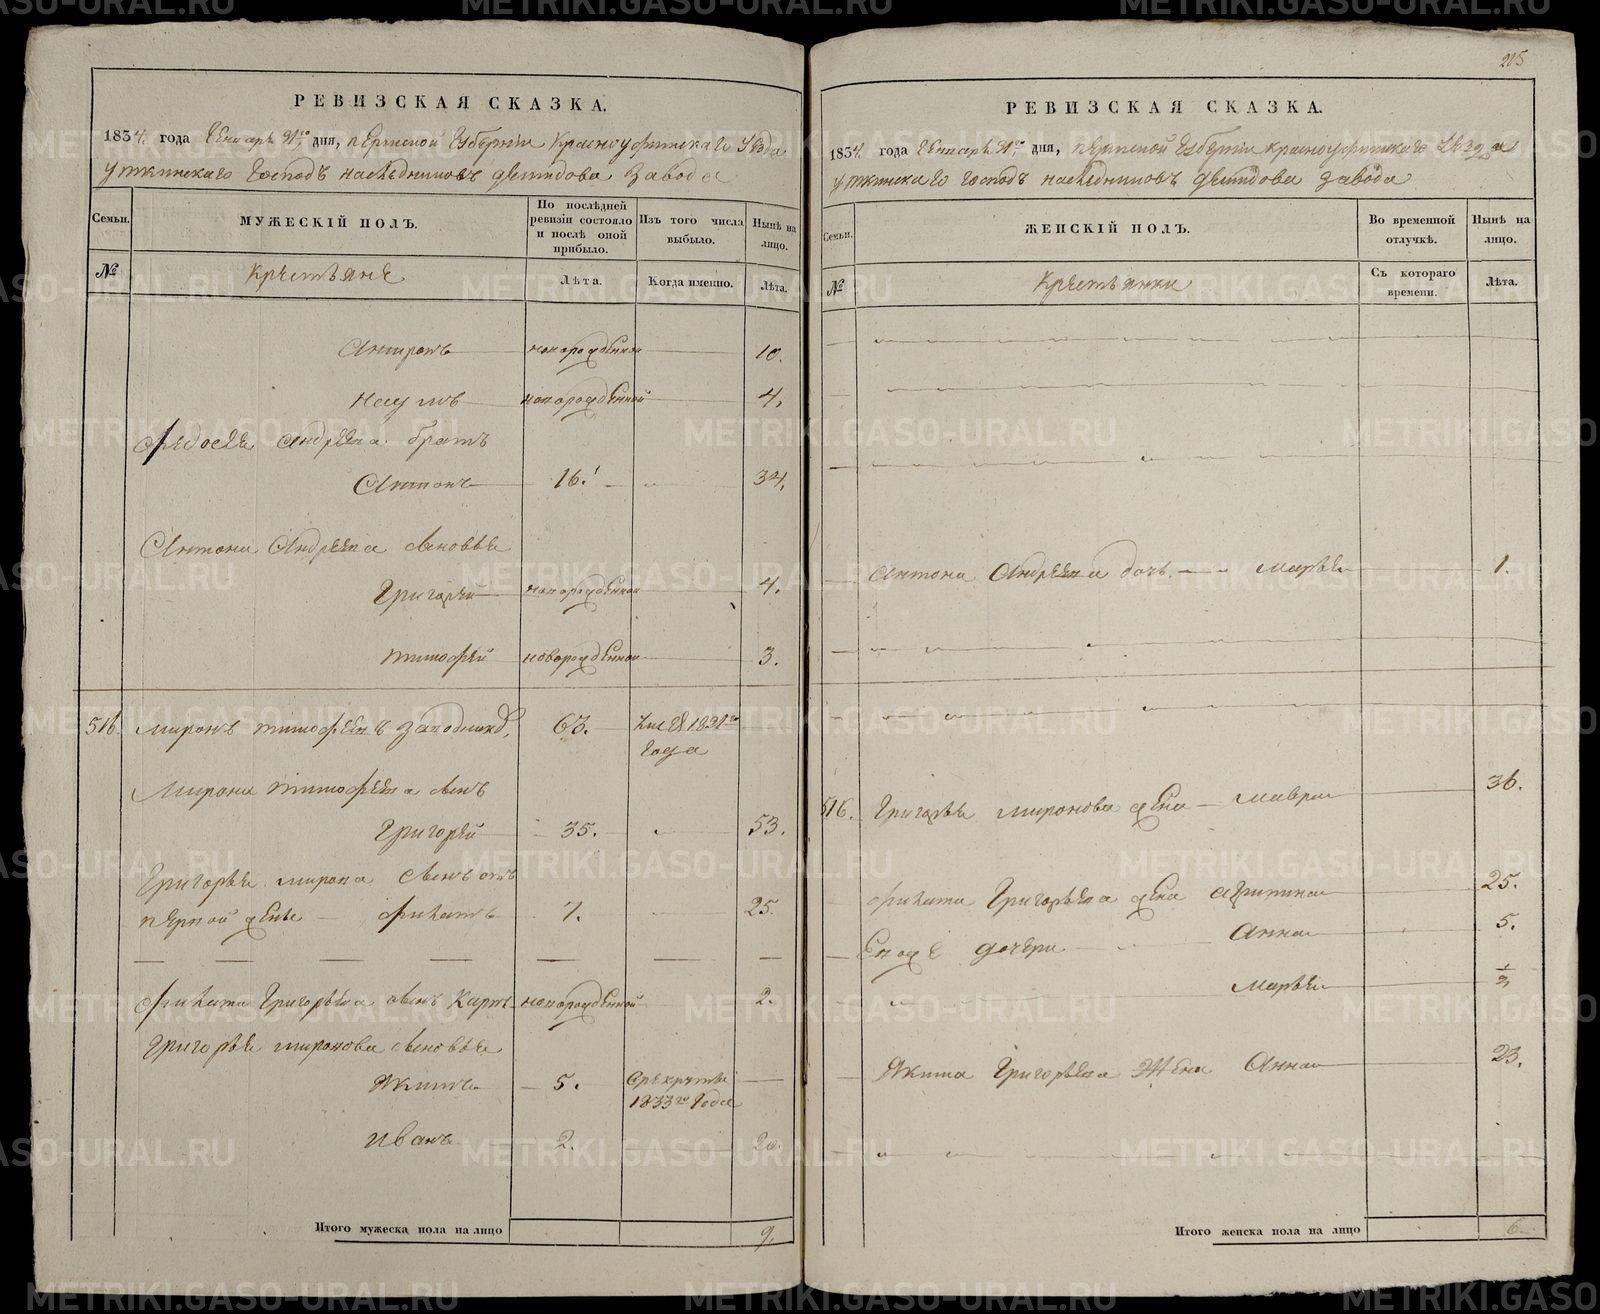 РЕВИЗСКАЯ СКАЗКА.
1834. года Генваря 31го дня, пермской Губернiи Красноуфимскаго Уезда
уткинскаго Господъ наследниковъ демидова завода
Семьи.
МУЖЕСКІЙ ПОЛЪ.
По послѣдней ревизіи состояло и послѣ оной прибыло.
Изъ того числа выбыло.
Нынѣ на лицо.
№
Крестьяне
Лѣта.
Когда именно.
Лѣта.
новорожденной 10.
Наумъ новорожденной 4.
Федосея Андреева братъ
Антонъ 16. 34.
Антона Андреева сыновья
Григорей новорожденной 4.
тимофей новорожденной 3.
516. Миронъ тимофеевъ 63. 1831го
года
Мирона тимофеева сынъ
Григорей 35. 53.
Григорья мирона сынъ отъ
первой жены 7. 25.
Григорьева сынъ новорожденной 2.
Григорья миронова сыновья
Якимъ 5. Въ рекруты
1833го Года
Иванъ 2. 20.
Итого мужеска пола на лицо 9.
215
РЕВИЗСКАЯ СКАЗКА.
1834. года Генваря 31го дня, пермской Губернiи красноуфимскаго Уезда
уткинскаго Господъ наследниковъ демидова завода
Семьи.
ЖЕНСКІЙ ПОЛЪ.
Во временной отлучкѣ.
Нынѣ на лицо.
№
Крестьянки
Съ котораго времени.
Лѣта.
Антона Андреева дочь марья 1.
516. Григорья миронова жена мавра 36.
Григорьева жена агрипина 25.
Евоже дочери Анна 5.
марья 1/2
Якима Григорьева Жена Анна 23.
Итого женска пола на лицо 6
METRIKI.GASO-URAL.RU